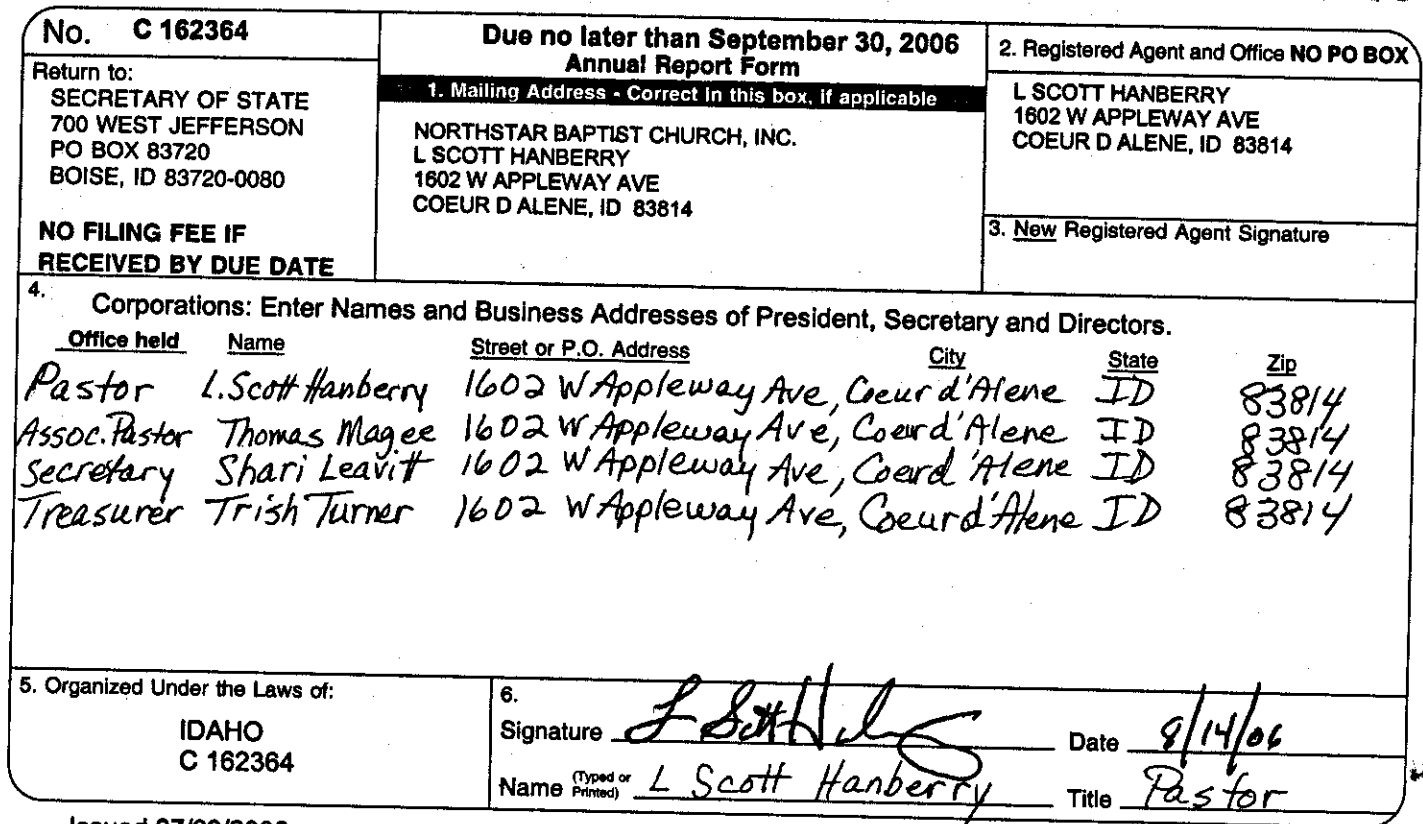 No. C 162364
Return to:
SECRETARY OF STATE
700 WEST JEFFERSON
PO BOX 83720
BOISE, ID 83720-0080
NO FILING FEE IF
RECEIVED BY DUE DATE
Due no later than September 30, 2006
Annual Report Form
1. Mailing Address - Correct in this box, if applicable
NORTHSTAR BAPTIST CHURCH, INC.
L SCOTT HANBERRY
1602 W APPLEWAY AVE
COEUR D ALENE, ID 83814
2. Registered Agent and Office NO PO BOX
L SCOTT HANBERRY
1602 W APPLEWAY AVE
COEUR D ALENE, ID 83814
3. New Registered Agent Signature
4. Corporations: Enter Names and Business Addresses of President, Secretary and Directors.
Office held Name Street or P.O. Address City State Zip
Pastor L. Scott Hanberry 1602 W Appleway Ave, Coeur d'Alene ID 83814
Assoc. Pastor Thomas Magee 1602 W Appleway Ave, Coeur d'Alene ID 83814
Secretary Shari Leavitt 1602 W Appleway Ave, Coerd 'Alene ID 83814
Treasurer Trish Turner 1602 W Appleway Ave, Coeur d'Alene ID 83814
5. Organized Under the Laws of:
IDAHO
C 162364
6.
Signature L Scott Hanberry Date 8/14/06
Name (Typed or Printed) L Scott Hanberry Title Pastor